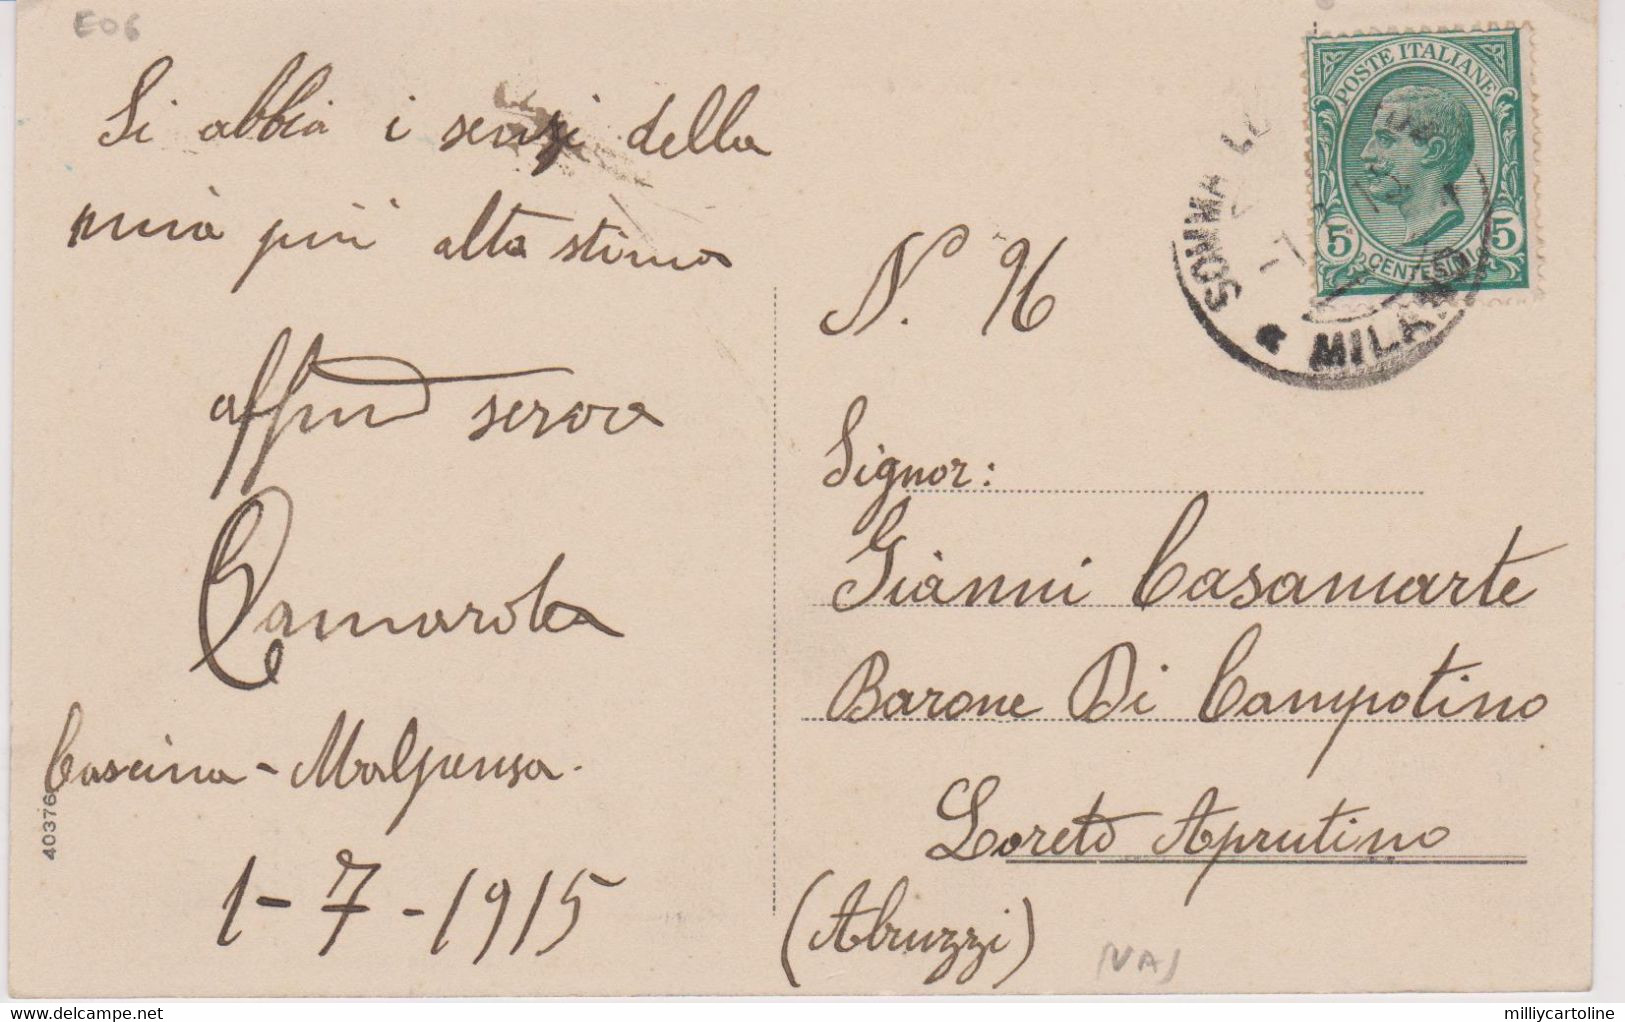 E06
Si abbia i sensi della
mia più alta stima
serva
Camarota
Cascina - Malpensa.
1-7-1915
40376
POSTE ITALIANE
5 CENTESIMI 5
SOMMA LO
MILANO
N.º 96
Signor:
Gianni Casamarte
Barone Di Campotino
Loreto Aprutino
(Abruzzi)
(VA)
millycartoline